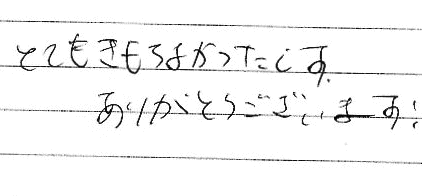 とてもきもちよかったです
ありがとうございます!